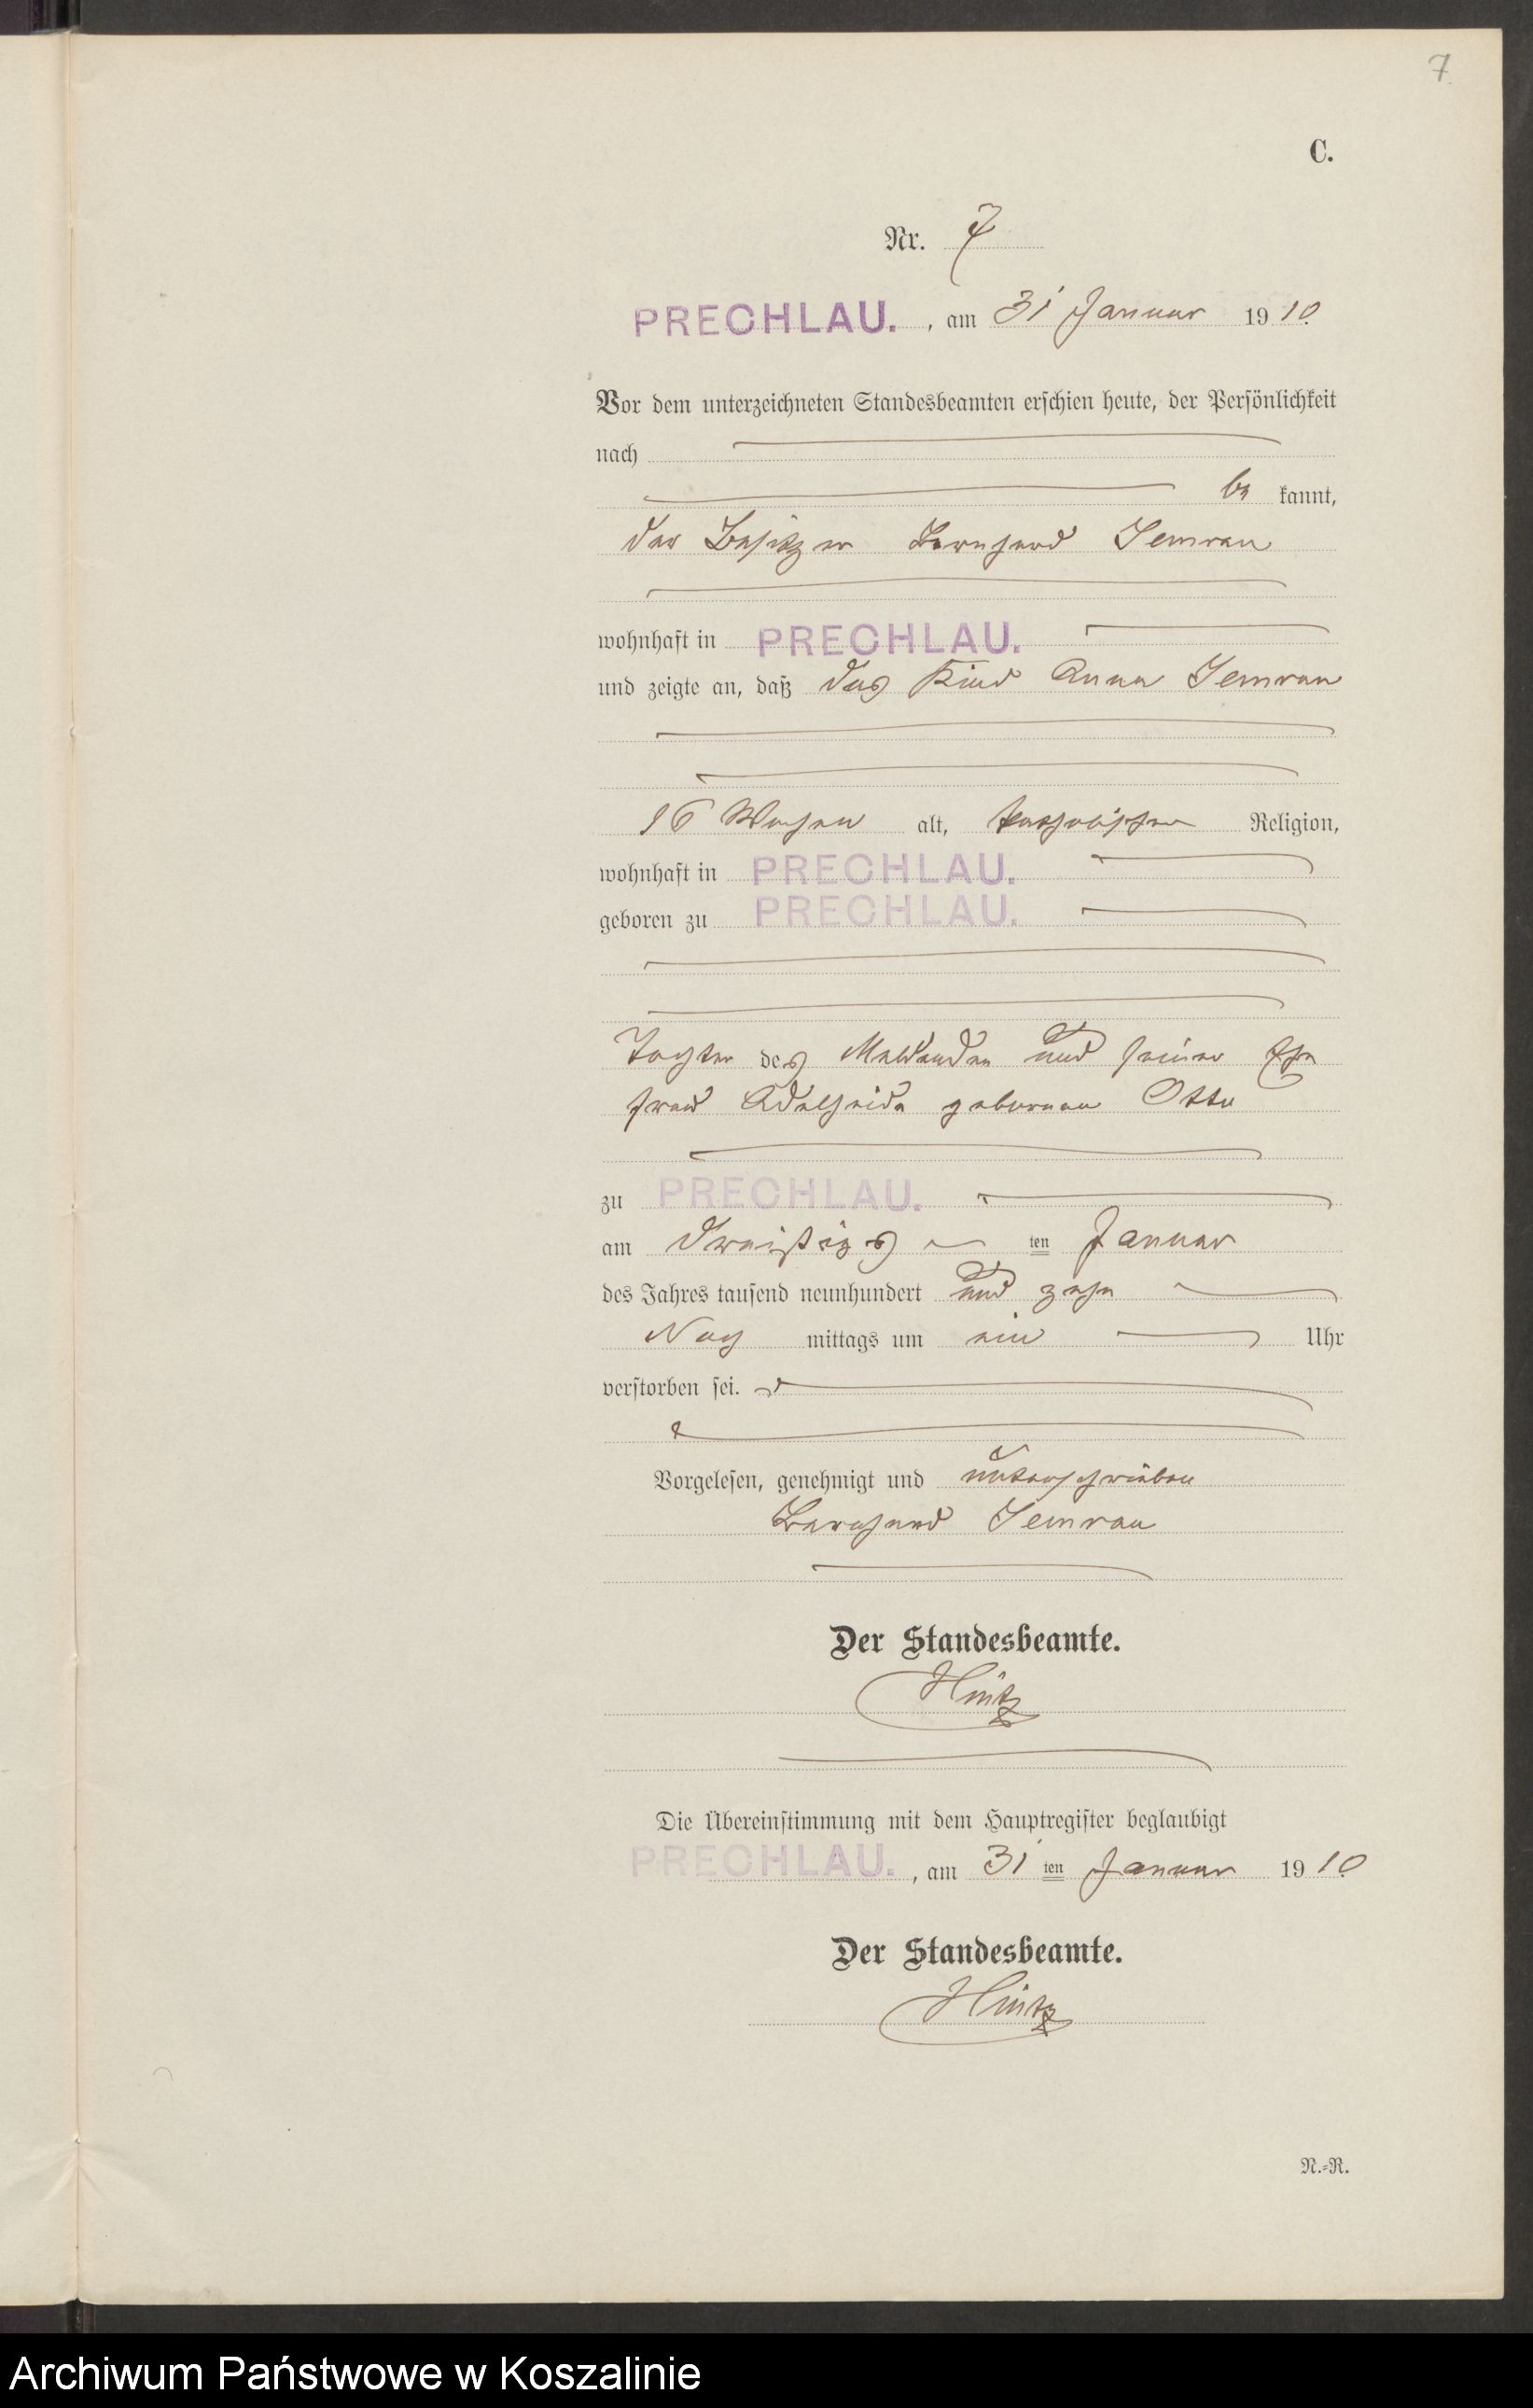 7
C.
Nr. 7
PRECHLAU. , am 31 Januar 1910.
Vor dem unterzeichneten Standesbeamten erschien heute, der Persönlichkeit
nach
be kannt,
der Besitzer Bernhard Semrau
wohnhaft in PRECHLAU.
und zeigte an, daß das Kind Anna Semrau
16 Wochen alt, katholischer Religion,
wohnhaft in PRECHLAU.
geboren zu PRECHLAU.
Tochter des Meldenden und seiner Ehe
frau Adelheida geborenen Otto
zu PRECHLAU.
am dreißigs ten Januar
des Jahres tausend neunhundert und zehn
Nach mittags um ein Uhr
verstorben sei.
Vorgelesen, genehmigt und unterschrieben
Bernhard Semrau
Der Standesbeamte.
Hintz
Die Übereinstimmung mit dem Hauptregister beglaubigt
PRECHLAU. , am 31 ten Januar 1910.
Der Standesbeamte.
Hintz
N.=R.
Archiwum Państwowe w Koszalinie